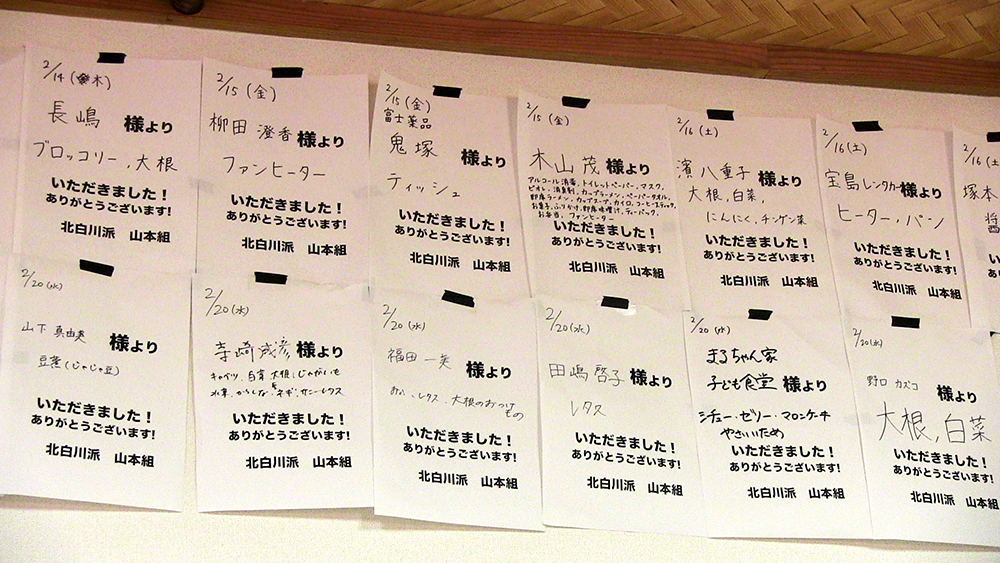 2/14(木)
長嶋 様より
ブロッコリー、大根
いただきました！
ありがとうございます!
北白川派 山本組
2/15(金)
柳田 澄香 様より
ファンヒーター
いただきました！
ありがとうございます!
北白川派 山本組
2/15(金)
富士薬品
鬼塚 様より
ティッシュ
いただきました！
ありがとうございます!
北白川派 山本組
2/15(金)
木山 茂 様より
アルコール消毒、トイレットペーパー、マスク、
ビオレ、消臭剤、カップラーメン、ペーパータオル、
即席ラーメン、カップスープ、カイロ、コーヒースティック、
お菓子、ふりかけ、即席味噌汁、ティーバック、
お弁当、ファンヒーター
いただきました！
ありがとうございます!
北白川派 山本組
2/16(土)
濱 八重子 様より
大根、白菜、
にんにく、チンゲン菜
いただきました！
ありがとうございます!
北白川派 山本組
2/16(土)
宝島レンタカー様より
ヒーター・パン
いただきました！
ありがとうございます!
北白川派 山本組
2/16(土)
塚本
2/20(水)
山下 真由美 様より
豆菓(じゃじゃ豆)
いただきました！
ありがとうございます!
北白川派 山本組
2/20(水)
寺崎成彦 様より
キャベツ、白菜、大根、じゃがいも
水菜、からしな、ネギ、サニーレタス
いただきました！
ありがとうございます!
北白川派 山本組
2/20(水)
福田 一美 様より
レタス、大根のおつけもの
いただきました！
ありがとうございます!
北白川派 山本組
2/20(水)
田嶋 啓子 様より
レタス
いただきました！
ありがとうございます!
北白川派 山本組
2/20(水)
まるちゃん家
子ども食堂 様より
シチュー・ゼリー・マロンケーキ
やさいいため
いただきました！
ありがとうございます!
北白川派 山本組
2/20(水)
野口 カズコ 様より
大根、白菜
いただきました！
ありがとうございます!
北白川派 山本組